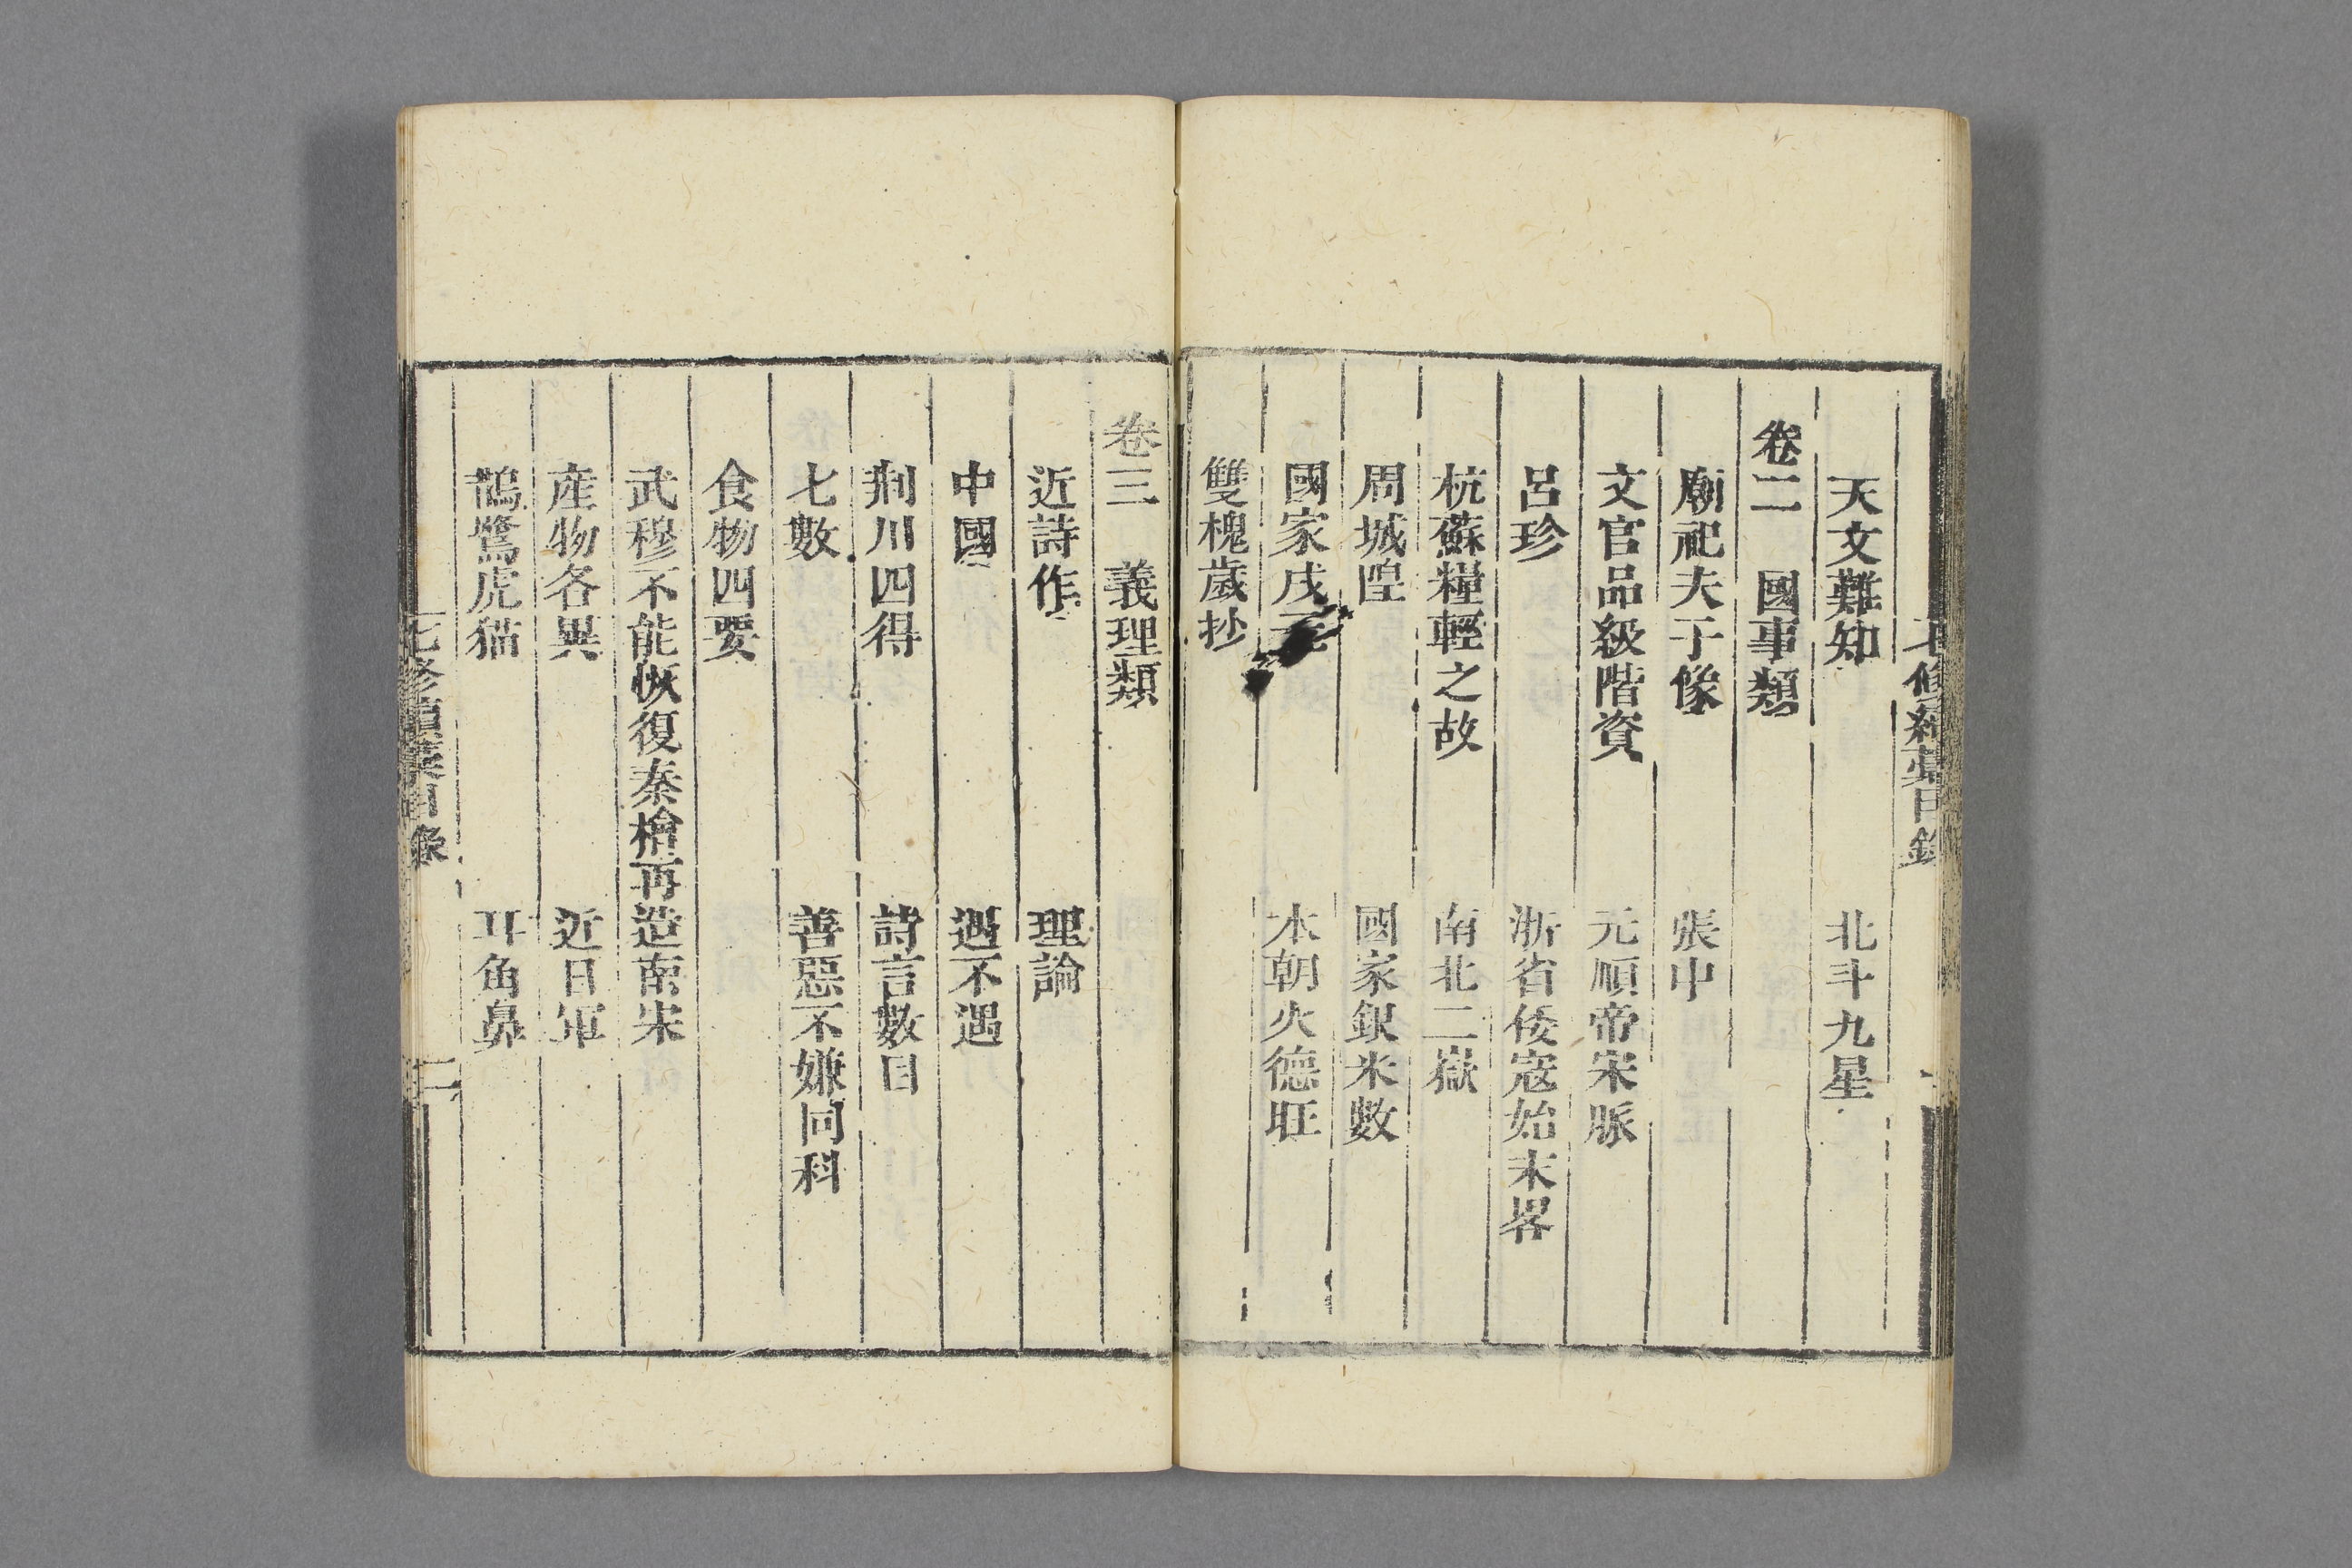 天文難知　北斗九星
卷二　國事類
廟祀夫子像　張中
文官品級階資　元順帝宋脈
呂珍　浙省倭寇始末畧
杭蘇糧輕之故　南北二嶽
周城隍　國家銀米數
國家戌　本朝火德旺
雙槐歲抄
卷三　義理類
近詩作　理論
中國　遇不遇
荆川四得　詩言數目
七數　善惡不嫌同科
食物四要
武穆不能恢復秦檜再造南宋
産物各異　近日軍
鵲鷺虎猫　耳角鼻
七修續藁目錄　二